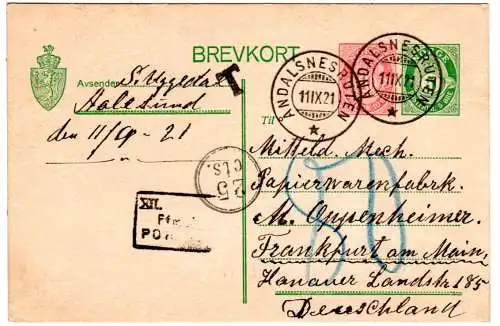 BREVKORT
Avsender:
Aalesund
den 11/9 - 21
T
ÅNDALSNESRUTEN
11 IX 21
ÅNDALSNESRUTEN
11 IX 21
Til
25
cts.
XII.
Mitteld. Mech.
Papierwarenfabrk.
M. Oppenheimer.
Frankfurt am Main,
Hanauer Landstr. 185
Deuschland